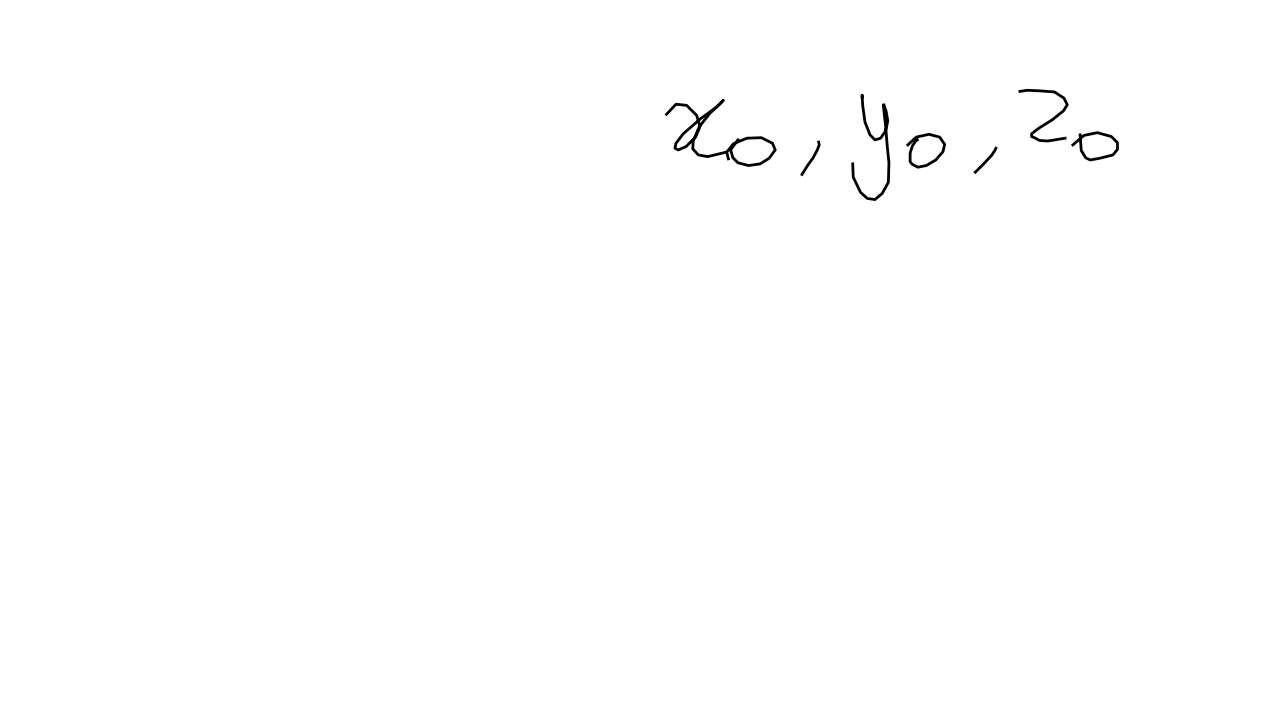 x₀, y₀, z₀